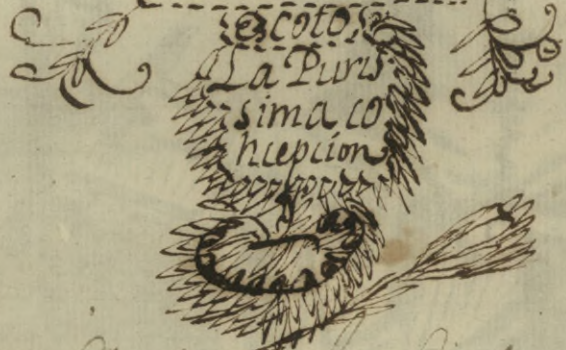 escoto,
La Puris
sima co
ncepcion